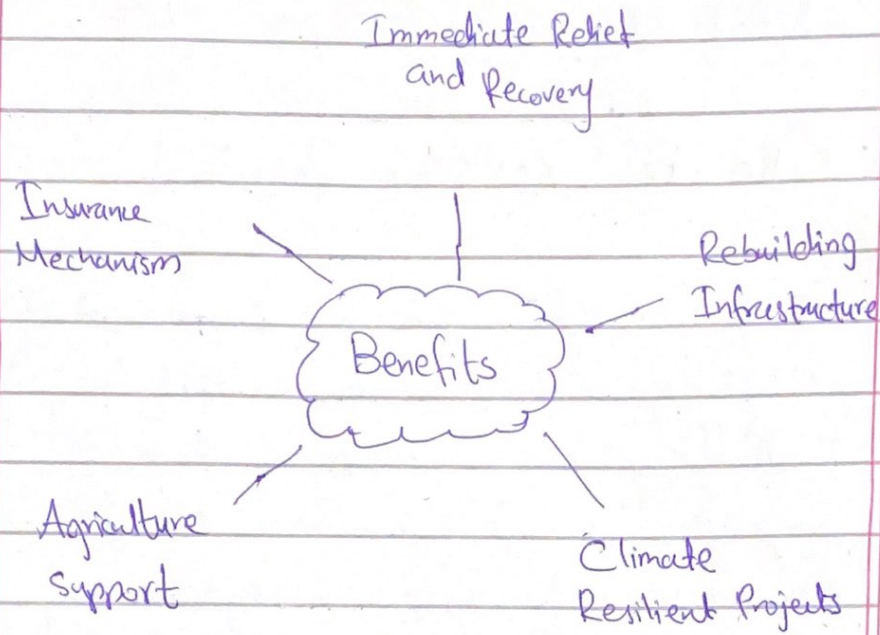 Immediate Relief
and Recovery
Insurance
Mechanism
Rebuilding
Infrastructure
Benefits
Agriculture
Support
Climate
Resilient Projects